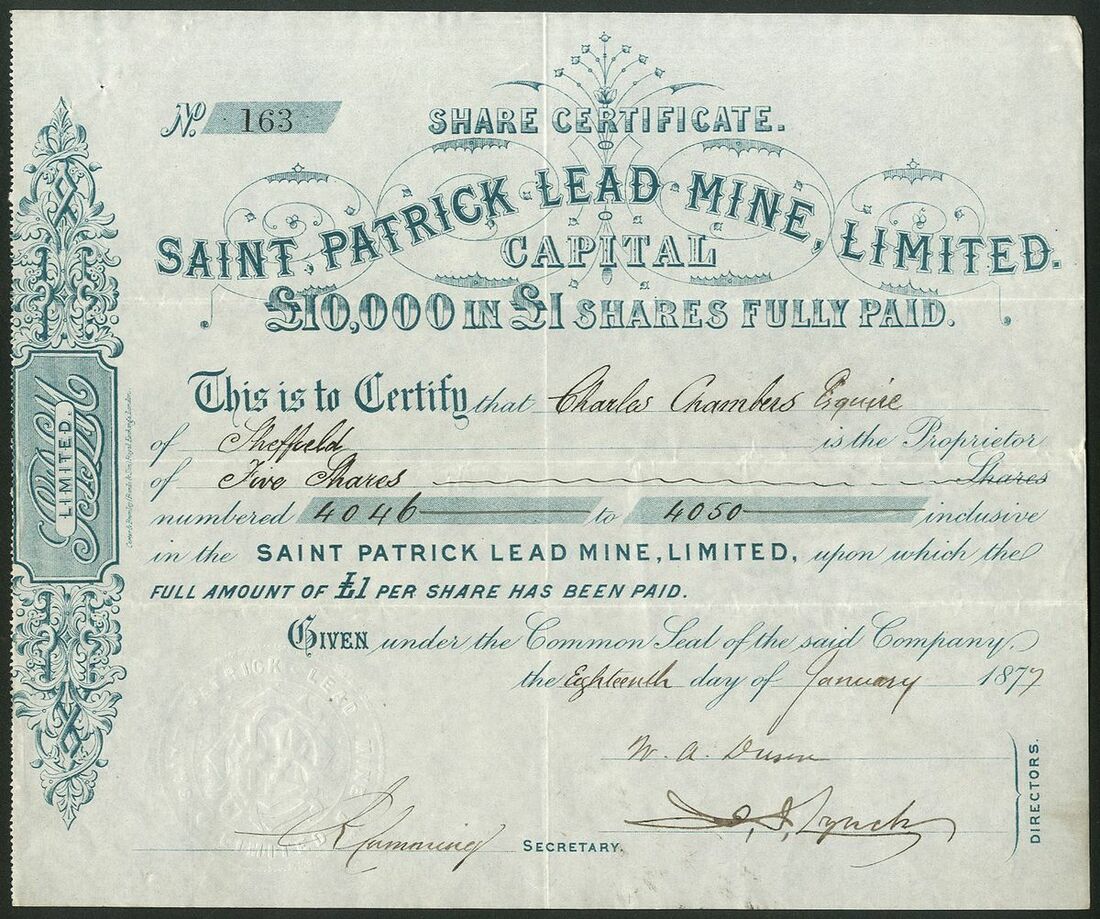 No. 163
SHARE CERTIFICATE.
SAINT PATRICK LEAD MINE, LIMITED.
CAPITAL
£10,000 IN £1 SHARES FULLY PAID.
This is to Certify that Charles Chambers Esquire
of Sheffield is the Proprietor
of Five Shares Shares
numbered 4046 to 4050 inclusive
in the SAINT PATRICK LEAD MINE, LIMITED, upon which the
FULL AMOUNT OF £1 PER SHARE HAS BEEN PAID.
GIVEN under the Common Seal of the said Company,
the Eighteenth day of January 1877
W. A.
Lynch
DIRECTORS.
Cumming SECRETARY.
PATRICK LEAD MINE
LIMITED
LIMITED